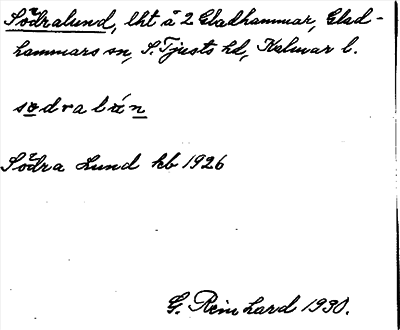 Södralund, lht å 2 Gladhammar, Glad-
hammars sn, S. Tjusts hd, Kalmar l.
södralún
Södra Lund kb 1926
G. Reinhard 1930.